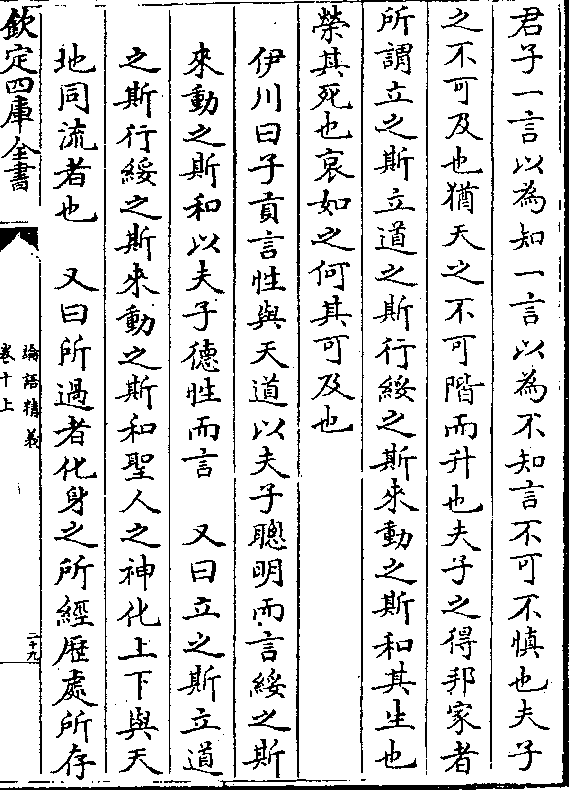 君子一言以為知一言以為不知言不可不慎也夫子
之不可及也猶天之不可階而升也夫子之得邦家者
所謂立之斯立道之斯行綏之斯來動之斯和其生也
榮其死也哀如之何其可及也
伊川曰子貢言性與天道以夫子聰明而言綏之斯
來動之斯和以夫子德性而言　又曰立之斯立道
之斯行綏之斯來動之斯和聖人之神化上下與天
地同流者也　又曰所過者化身之所經歷處所存
欽定四庫全書
論語精義
卷十上
二十九